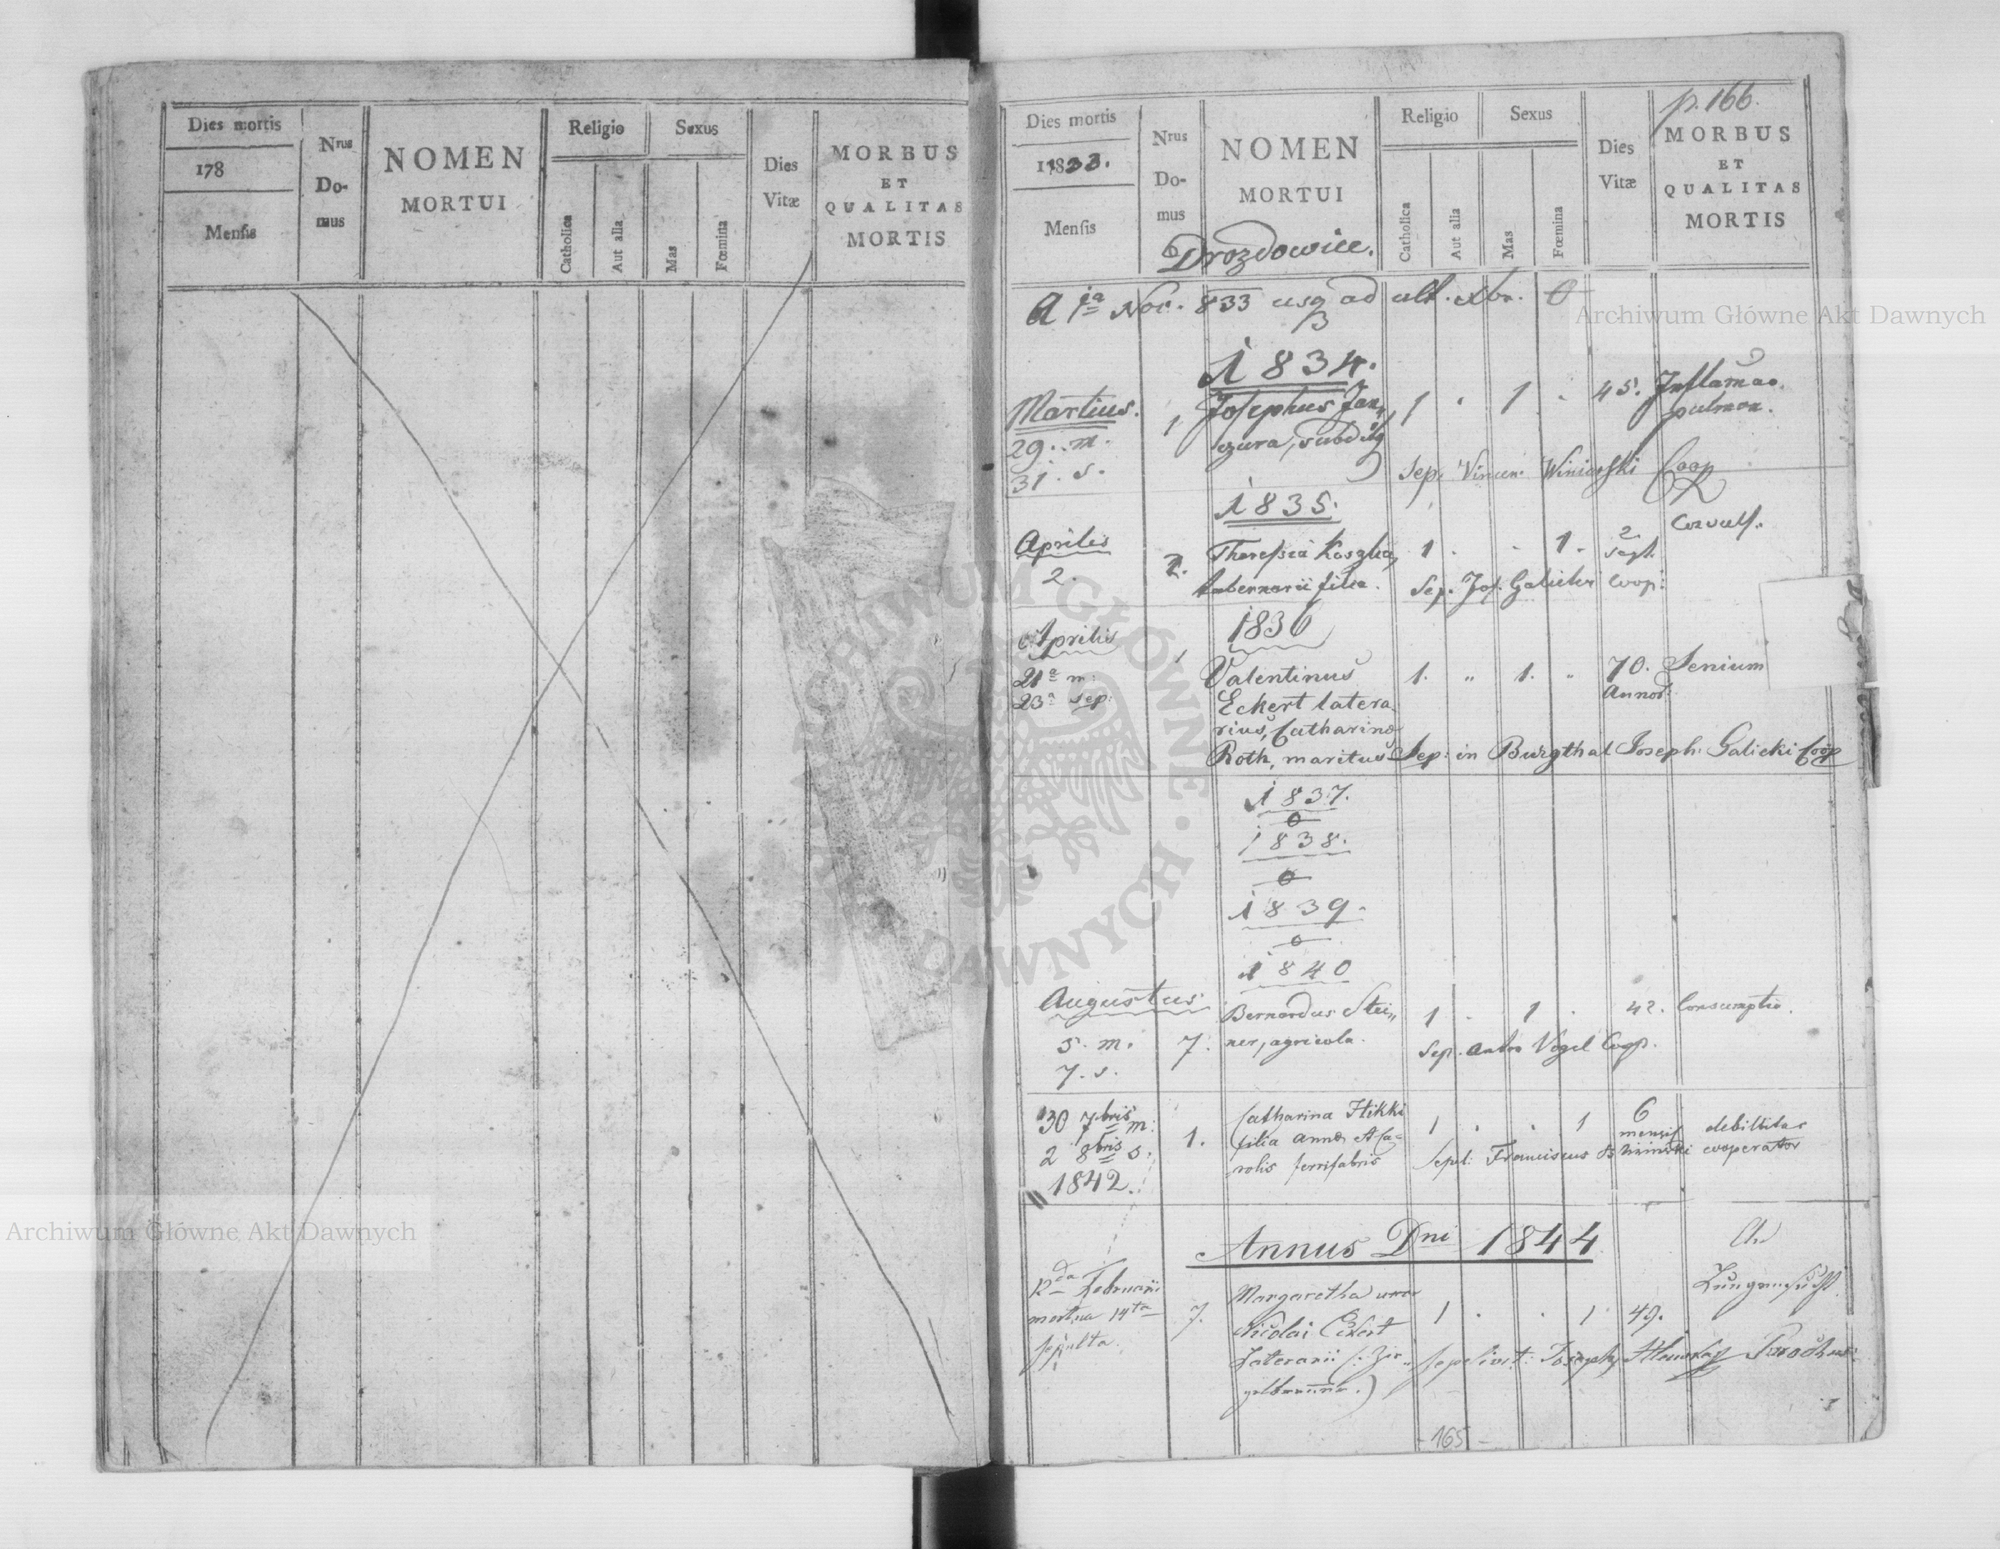 Dies mortis
178
Mensis
Nrus
Do-
mus
NOMEN
MORTUI
Religio
Catholica
Aut alia
Sexus
Mas
Fœmina
Dies
Vitæ
MORBUS
ET
QUALITAS
MORTIS
p. 166.
Dies mortis
1833.
Mensis
Nrus
Do-
mus
NOMEN
MORTUI
Drozdowice.
Religio
Catholica
Aut alia
Sexus
Mas
Fœmina
Dies
Vitæ
MORBUS
ET
QUALITAS
MORTIS
A 1a Nov. 833 usq ad ult. Xbr. 0
1834.
Martius. 1, Josephus Jan„ 1 . 1 . 45. Inflamao.
29. m. czura, subdi pulmon.
31. s. Sep. Vincen. Winiarski Coop
1835.
Aprilis 2. Theressia 1 . . 1. 2 Convuls.
2. tabernarii filia. Sep. Jos. Galicki coop:
1836
Aprilis 1
21a m: Valentinus 1. „ 1. „ 70. Senium
23a sep: Eckert latera Annor:
rius, Catharinæ
Roth, maritus Sep: in Burgthal Joseph Galicki Coop
1837.
0
1838.
0
1839.
0
1840
Augustus Bernardus Stei„ 1 . 1 . 42. Consumptio.
5. m. 7. ner, agricola. Sep. Anton Vogel Coop.
7. s.
30 7bris m: 1. Catharina Hikki 1 . . 1 6 debilitas
2 8bris s. filia Annæ & Ca= mensis
1842. rolis ferrifabris Sepel: Franciscus cooperator
Annus Dni 1844
12da Februarii 7. Margaretha uxor 1 . . 1 49. Lungensucht
mortua 14ta Nicolai Eckert
sepulta laterarii (: Zie„ sepelivit: Joseph Parochus
gelbrenner.)
- 165 -
Archiwum Główne Akt Dawnych
Archiwum Główne Akt Dawnych
ARCHIWUM GŁÓWNE · AKT DAWNYCH ·